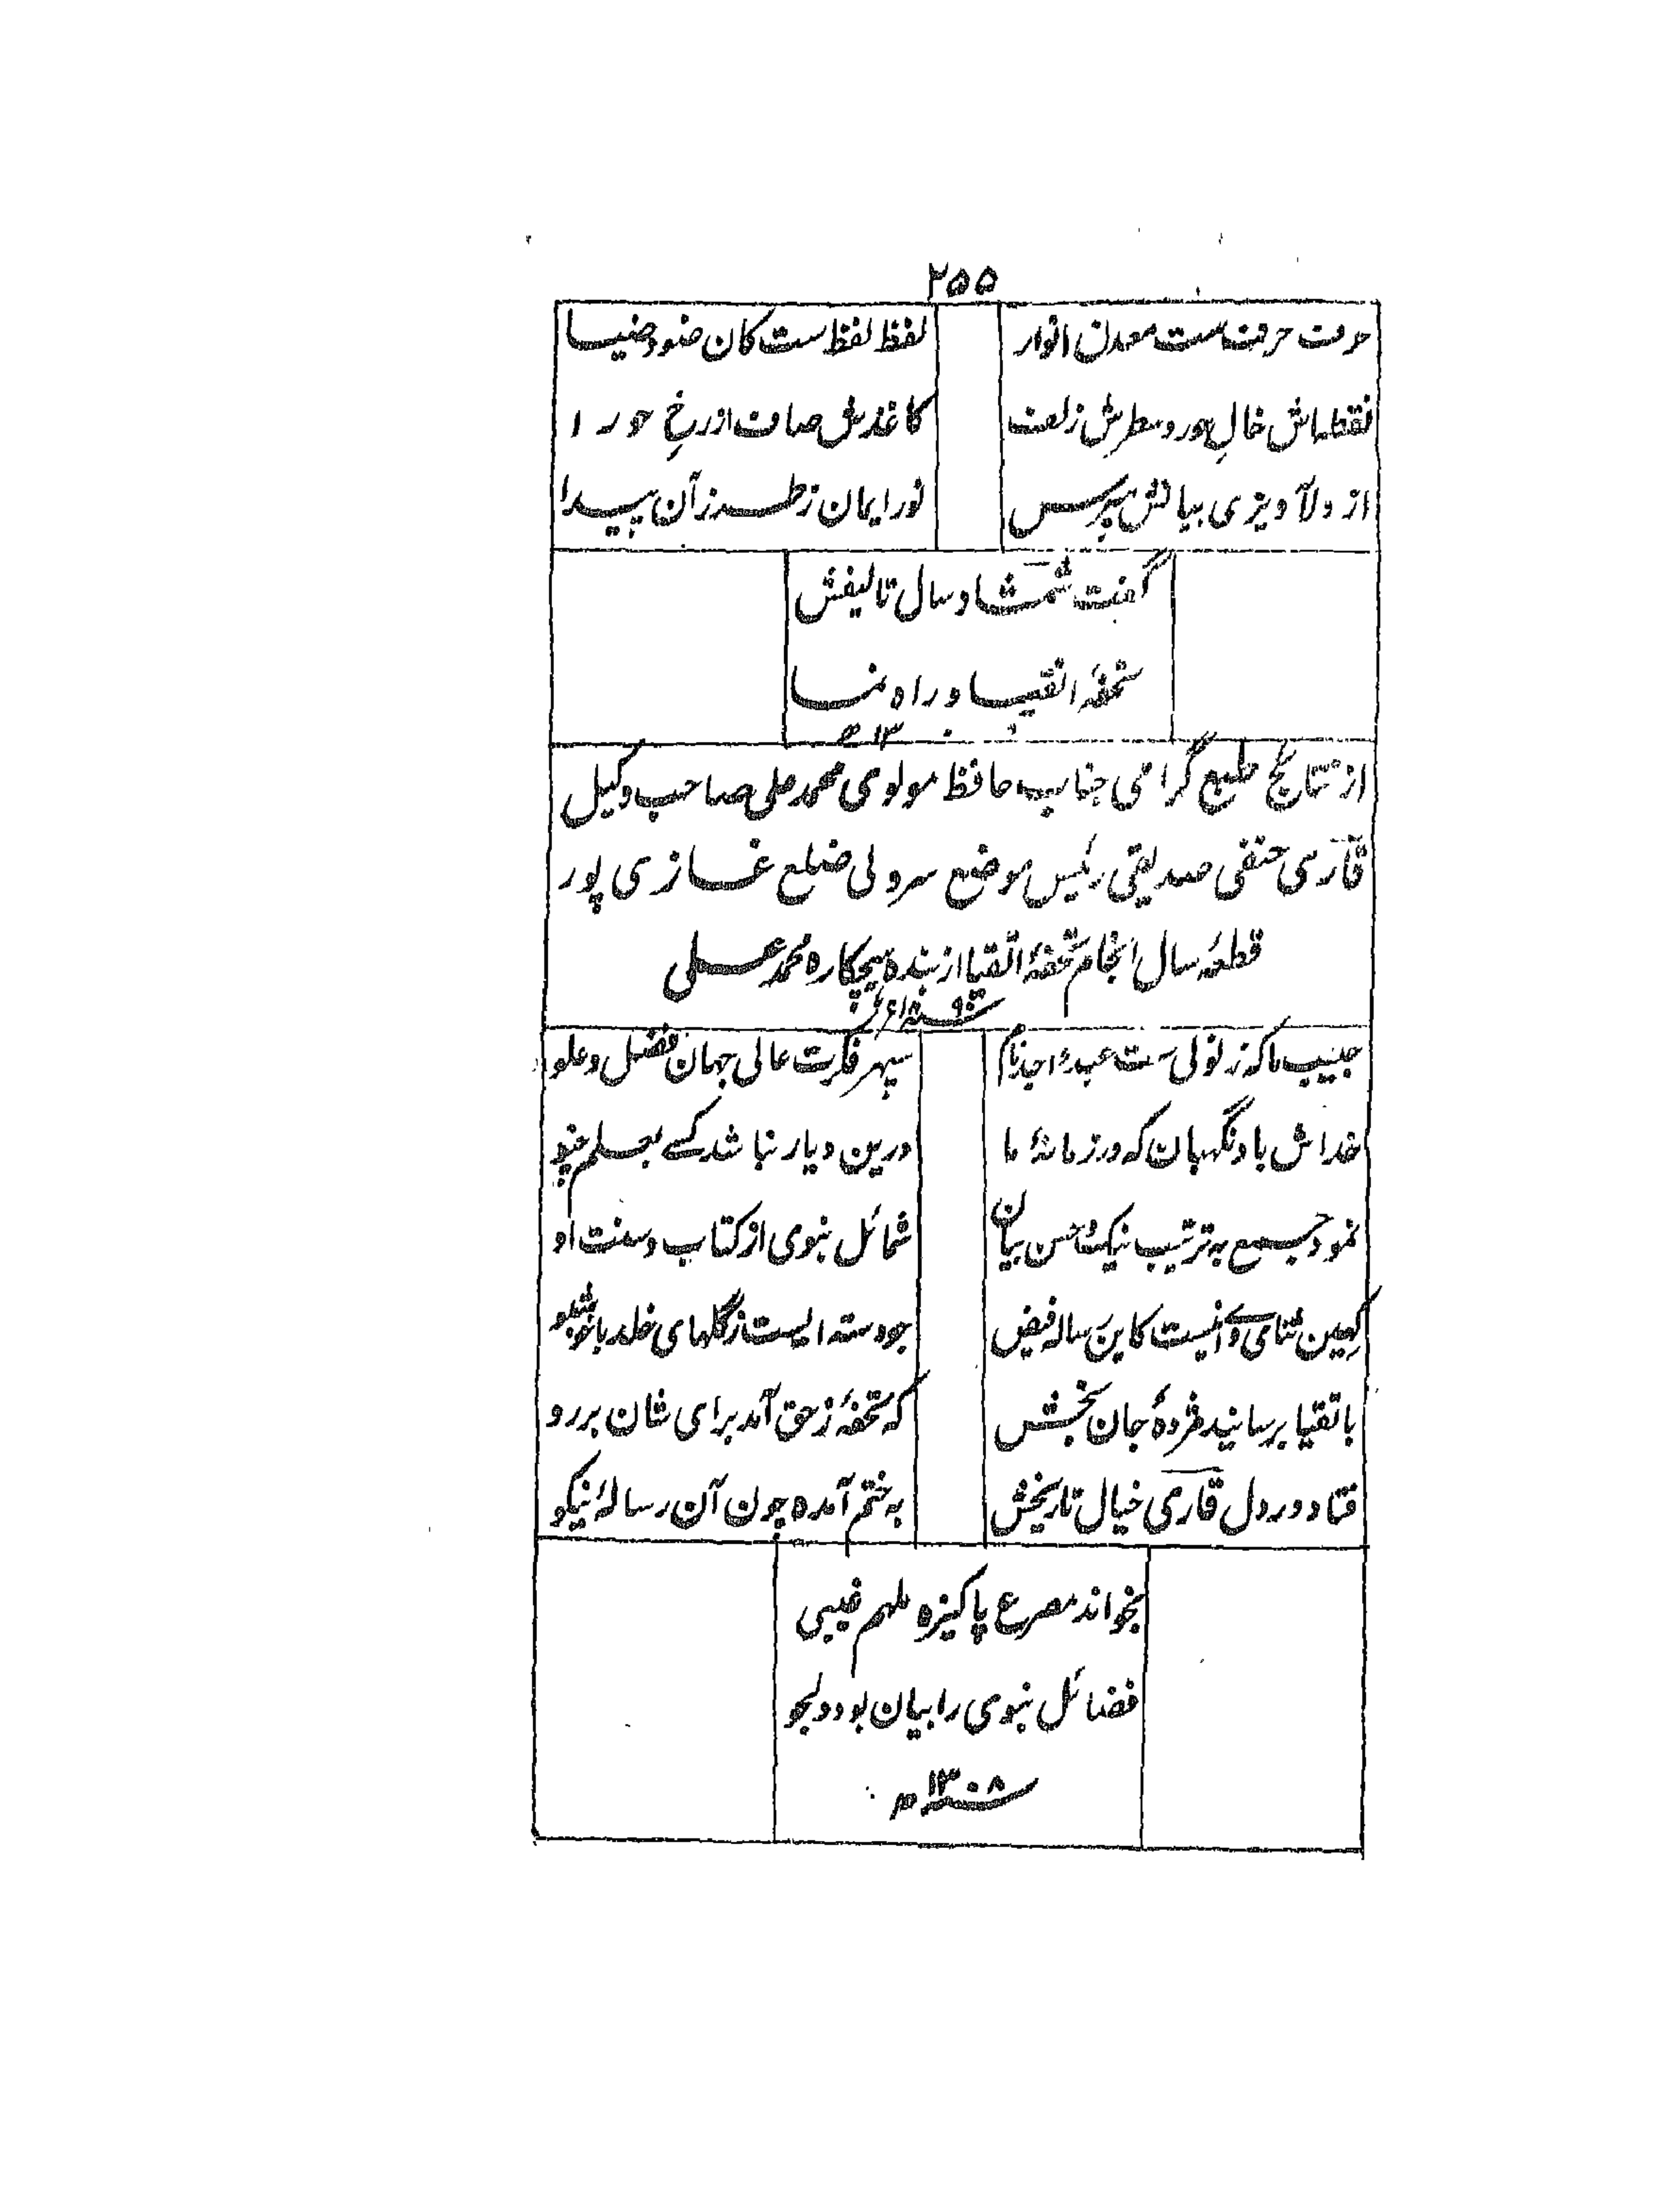 ۲۵۵
حرف حرفست معدن انوار لفظ لفظ ست کان ضوو ضیا
نقطهاش خالِ حور و سطرش زلف کاغذش صاف از رخِ حورا
از دلآویزی بیانش مپرس نور ایمان زطرز آن پیدا
گفت شمشاد سال تالیفش
تحفۂ اتقیا و راہ نما
۱۳ ھ
از نتائج طبع گرامی جناب حافظ مولوی محمد علی صاحب وکیل
قارسی حنفی صدیقی رئیس موضع سرولی ضلع غازی پور
قطعۂ سال انجام تحفۂ اتقیا از بندہ ہیچکارہ محمد علی
۱۸۹۰ء
حبیب ما کہ زنولی ست عبد احد نام سپہر فکرت عالی جہان فضل و علو
خداش باد نگہبان کہ در زمانۂ ما درین دیار نباشد کسے بعلم چنو
نمود جمع بہ ترتیب نیک و حسن بیان شمائل نبوی از کتاب و سنت او
کہین ثنای وے اینست کاین رسالہ فیض چو دستہ ایست زگلہای خلد باخوشبو
باتقیا برسانید مژدۂ جان بخش کہ تحفۂ زحق آمد برای شان بررو
فتاد در دل قاری خیال تاریخش بہ ختم آمدہ چون آن رسالۂ نیکو
بخواند مصرع پاکیزہ ملہم غیبی
فضائل نبوی را بیان بود دلجو
۱۳۰۸ ھ